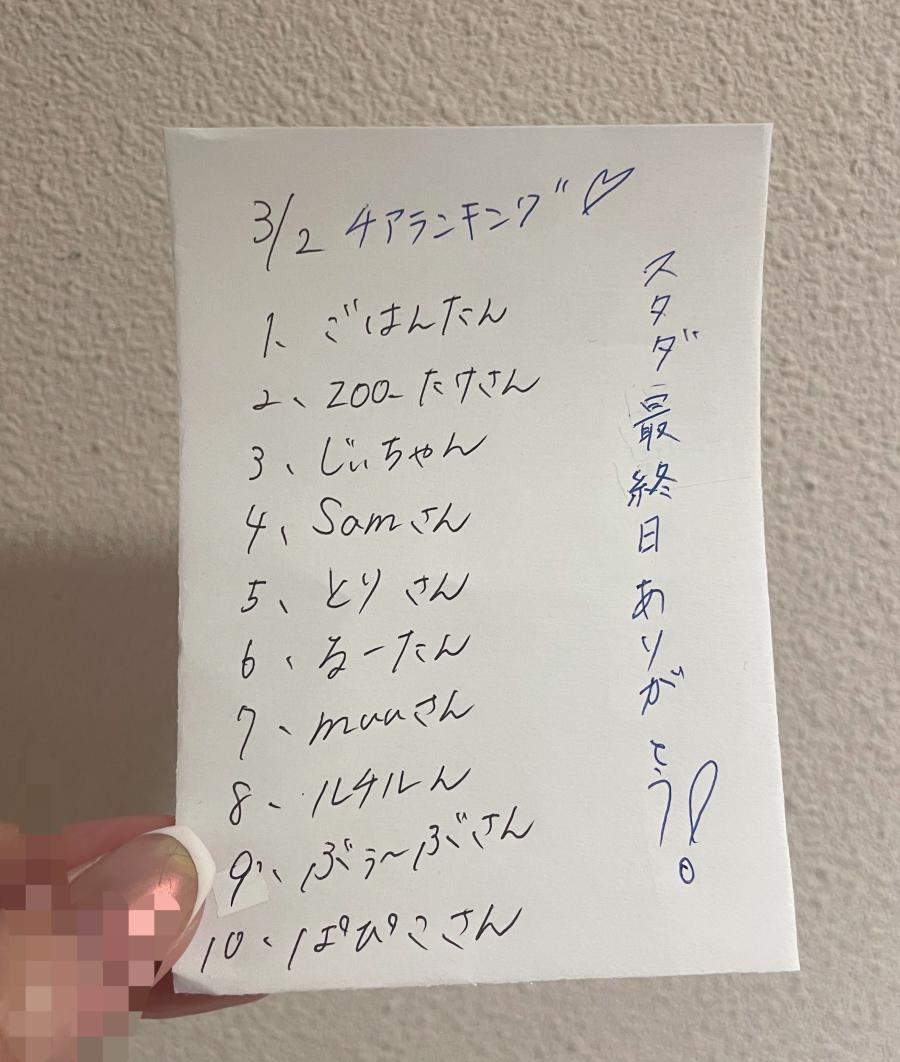 3/2 チアランキング♡
1、ごはんたん
2、ZOO-たけさん
3、じぃちゃん
4、Samさん
5、とりさん
6、るーたん
7、muuさん
8、ルチルん
9、ぶぅ〜ぶさん
10、ぱぴこさん
スタダ最終日ありがとう!